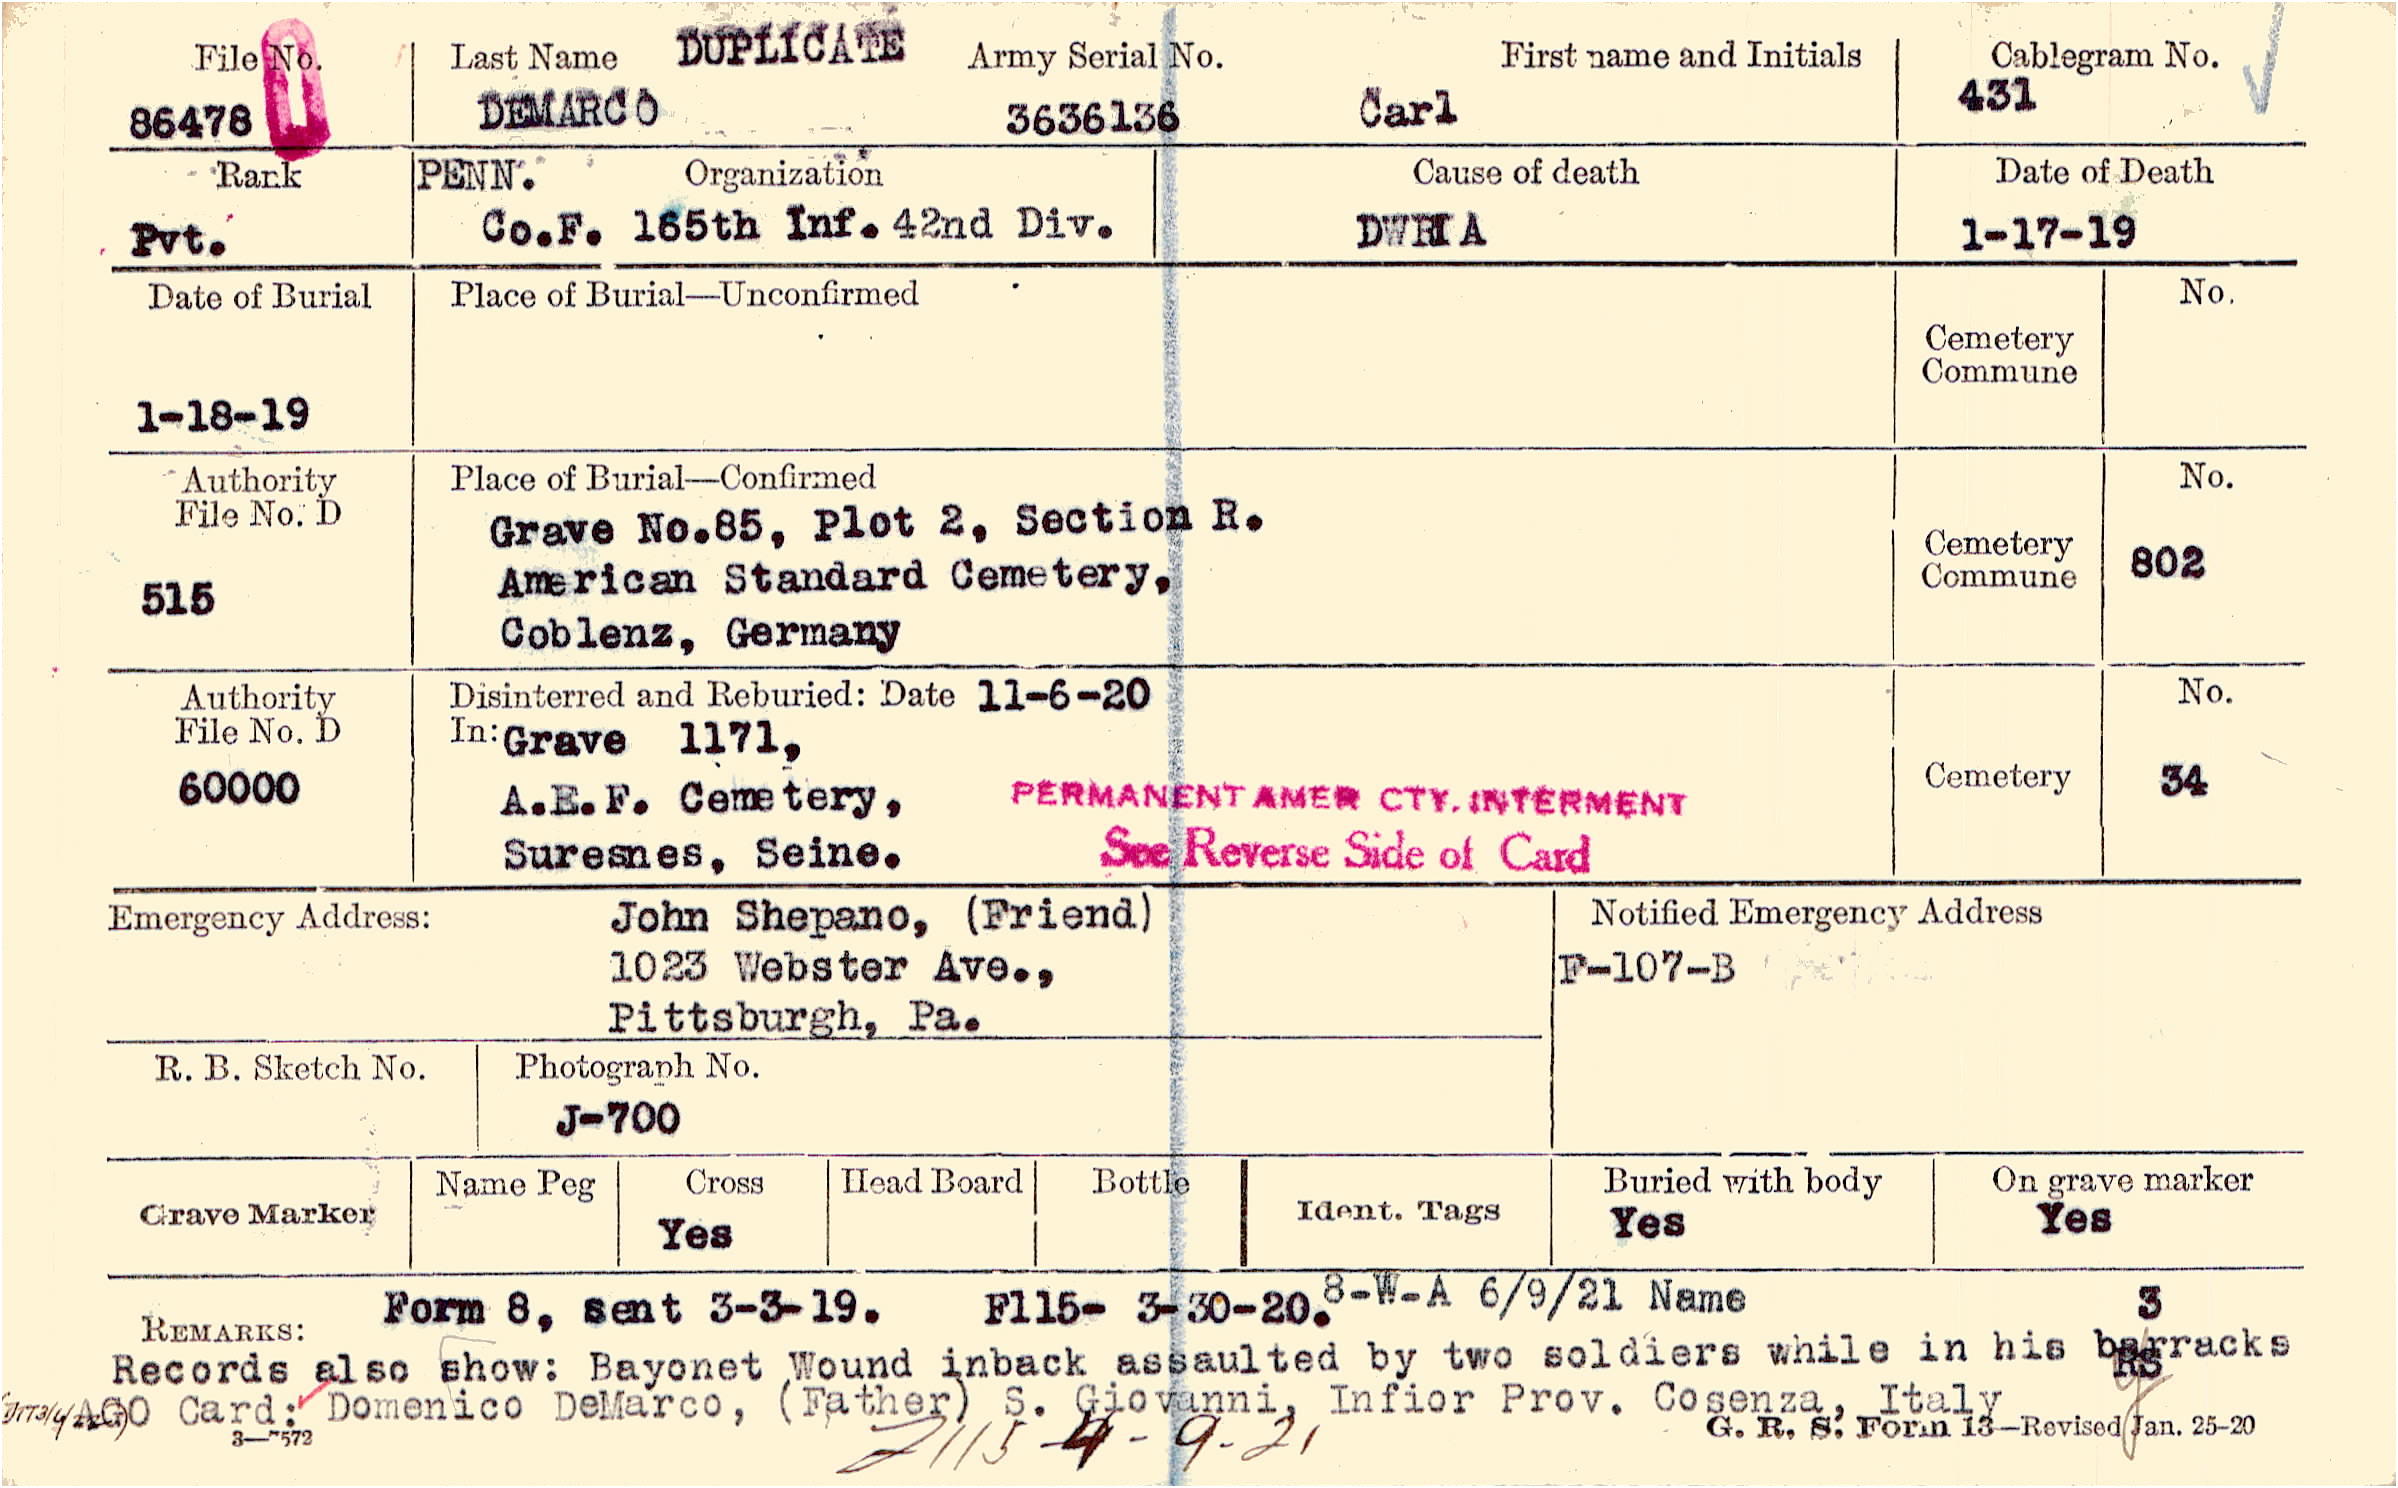 File No. Last Name DUPLICATE Army Serial No. First name and Initials Cablegram No.
86478 DEMARCO 3636136 Carl 431
Rank PENN. Organization Cause of death Date of Death
Pvt. Co.F. 165th Inf. 42nd Div. DWRIA 1-17-19
Date of Burial Place of Burial—Unconfirmed No.
Cemetery
Commune
1-18-19
Authority Place of Burial—Confirmed No.
File No. D
Grave No.85, Plot 2, Section R.
American Standard Cemetery,
Coblenz, Germany
515
Cemetery
Commune 802
Authority Disinterred and Reburied: Date 11-6-20 No.
File No. D In: Grave 1171,
60000 A.E.F. Cemetery, PERMANENT AMER CTY. INTERMENT Cemetery 34
Suresnes, Seine. See Reverse Side of Card
Emergency Address: John Shepano, (Friend) Notified Emergency Address
1023 Webster Ave., F-107-B
Pittsburgh, Pa.
R. B. Sketch No. Photograph No.
J-700
Grave Marker Name Peg Cross Head Board Bottle Ident. Tags Buried with body On grave marker
Yes Yes Yes
REMARKS: Form 8, sent 3-3-19. F115- 3-30-20. 8-W-A 6/9/21 Name 3
Records also show: Bayonet Wound inback assaulted by two soldiers while in his barracks
RS
AGO Card: Domenico DeMarco, (Father) S. Giovanni, Infior Prov. Cosenza, Italy
3—7572 2115 4-9-21 G. R. S. Form 13—Revised Jan. 25-20